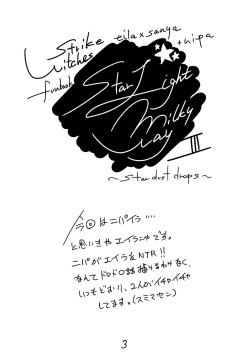 Strike Witches
eila×sanya
+nipa
funbook
Star Light
Milky
Way
III
~stardust drops~
今回はニパイラ....
と思いきやエイラーニャです。
ニパがエイラをNTR!!
なんてドロドロ話描けるわけなく、
いつもどおり、2人がイチャイチャ
してます。(スミマセン)
3